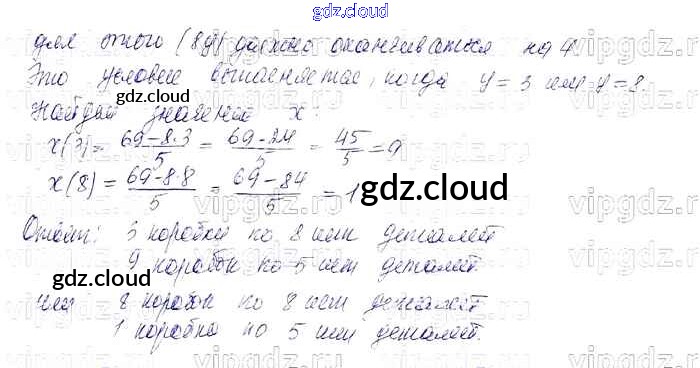 gdz.cloud
для этого (8y) должно оканчиваться на 4.
Это условие выполняется, когда y=3 или y=8.
gdz.cloud
Найдем значения x:
x(3)= 69-8·3/5 = 69-24/5 = 45/5 = 9
x(8)= 69-8·8/5 = 69-84/5 = 1
gdz.cloud
Ответ: 3 коробки по 8 шт деталей
9 коробок по 5 шт деталей.
gdz.cloud
или 8 коробок по 8 шт деталей
1 коробка по 5 шт деталей.
vipgdz.ru